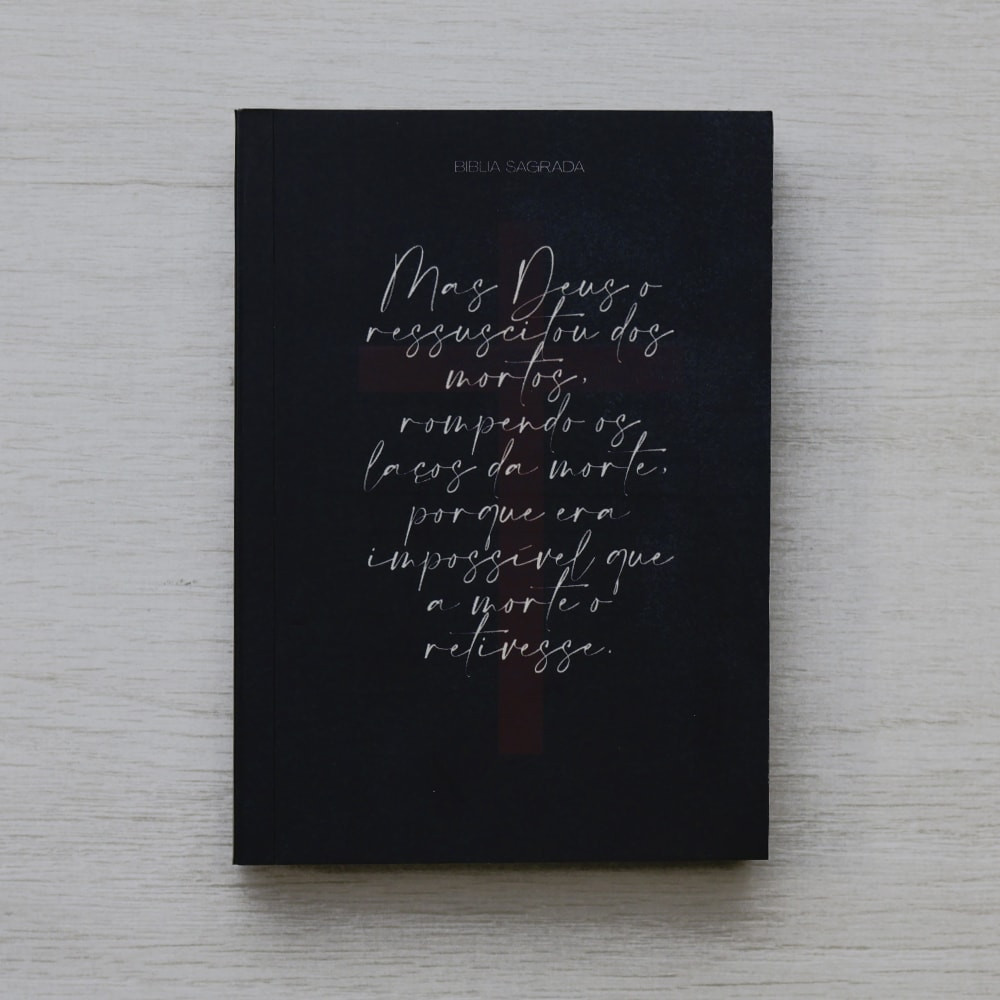 BIBLIA SAGRADA
Mas Deus o
ressuscitou dos
mortos,
rompendo os
laços da morte,
porque era
impossível que
a morte o
retivesse.